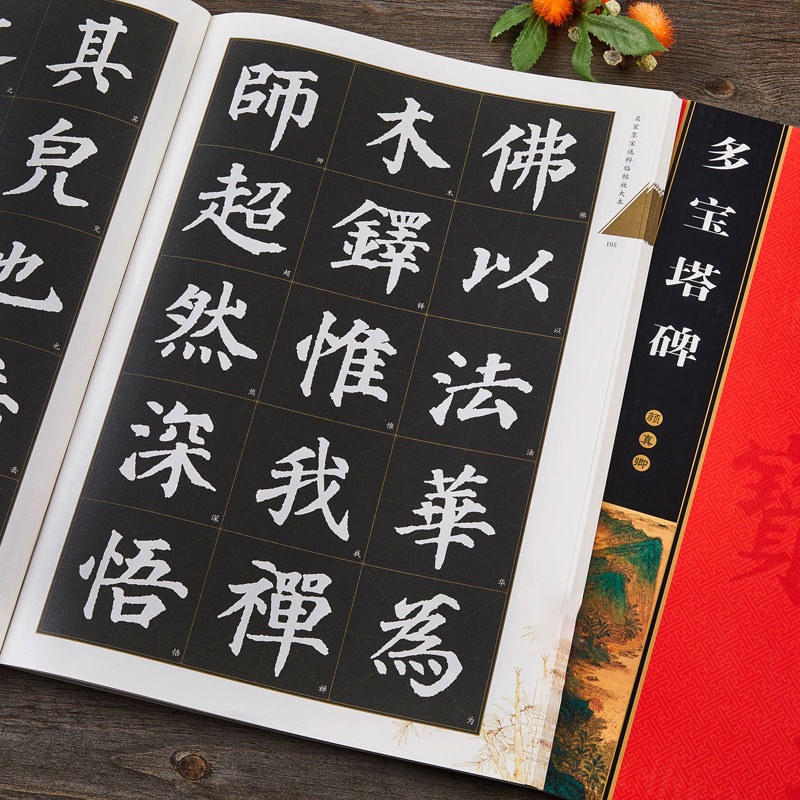 佛以法華為
木鐸惟我禪
師超然深悟
佛
以
法
华
为
木
铎
惟
我
禅
师
超
然
深
悟
名家墨宝选粹临帖放大本
105
其皃也
其
也
岳
之
多宝塔碑
颜真卿
寶